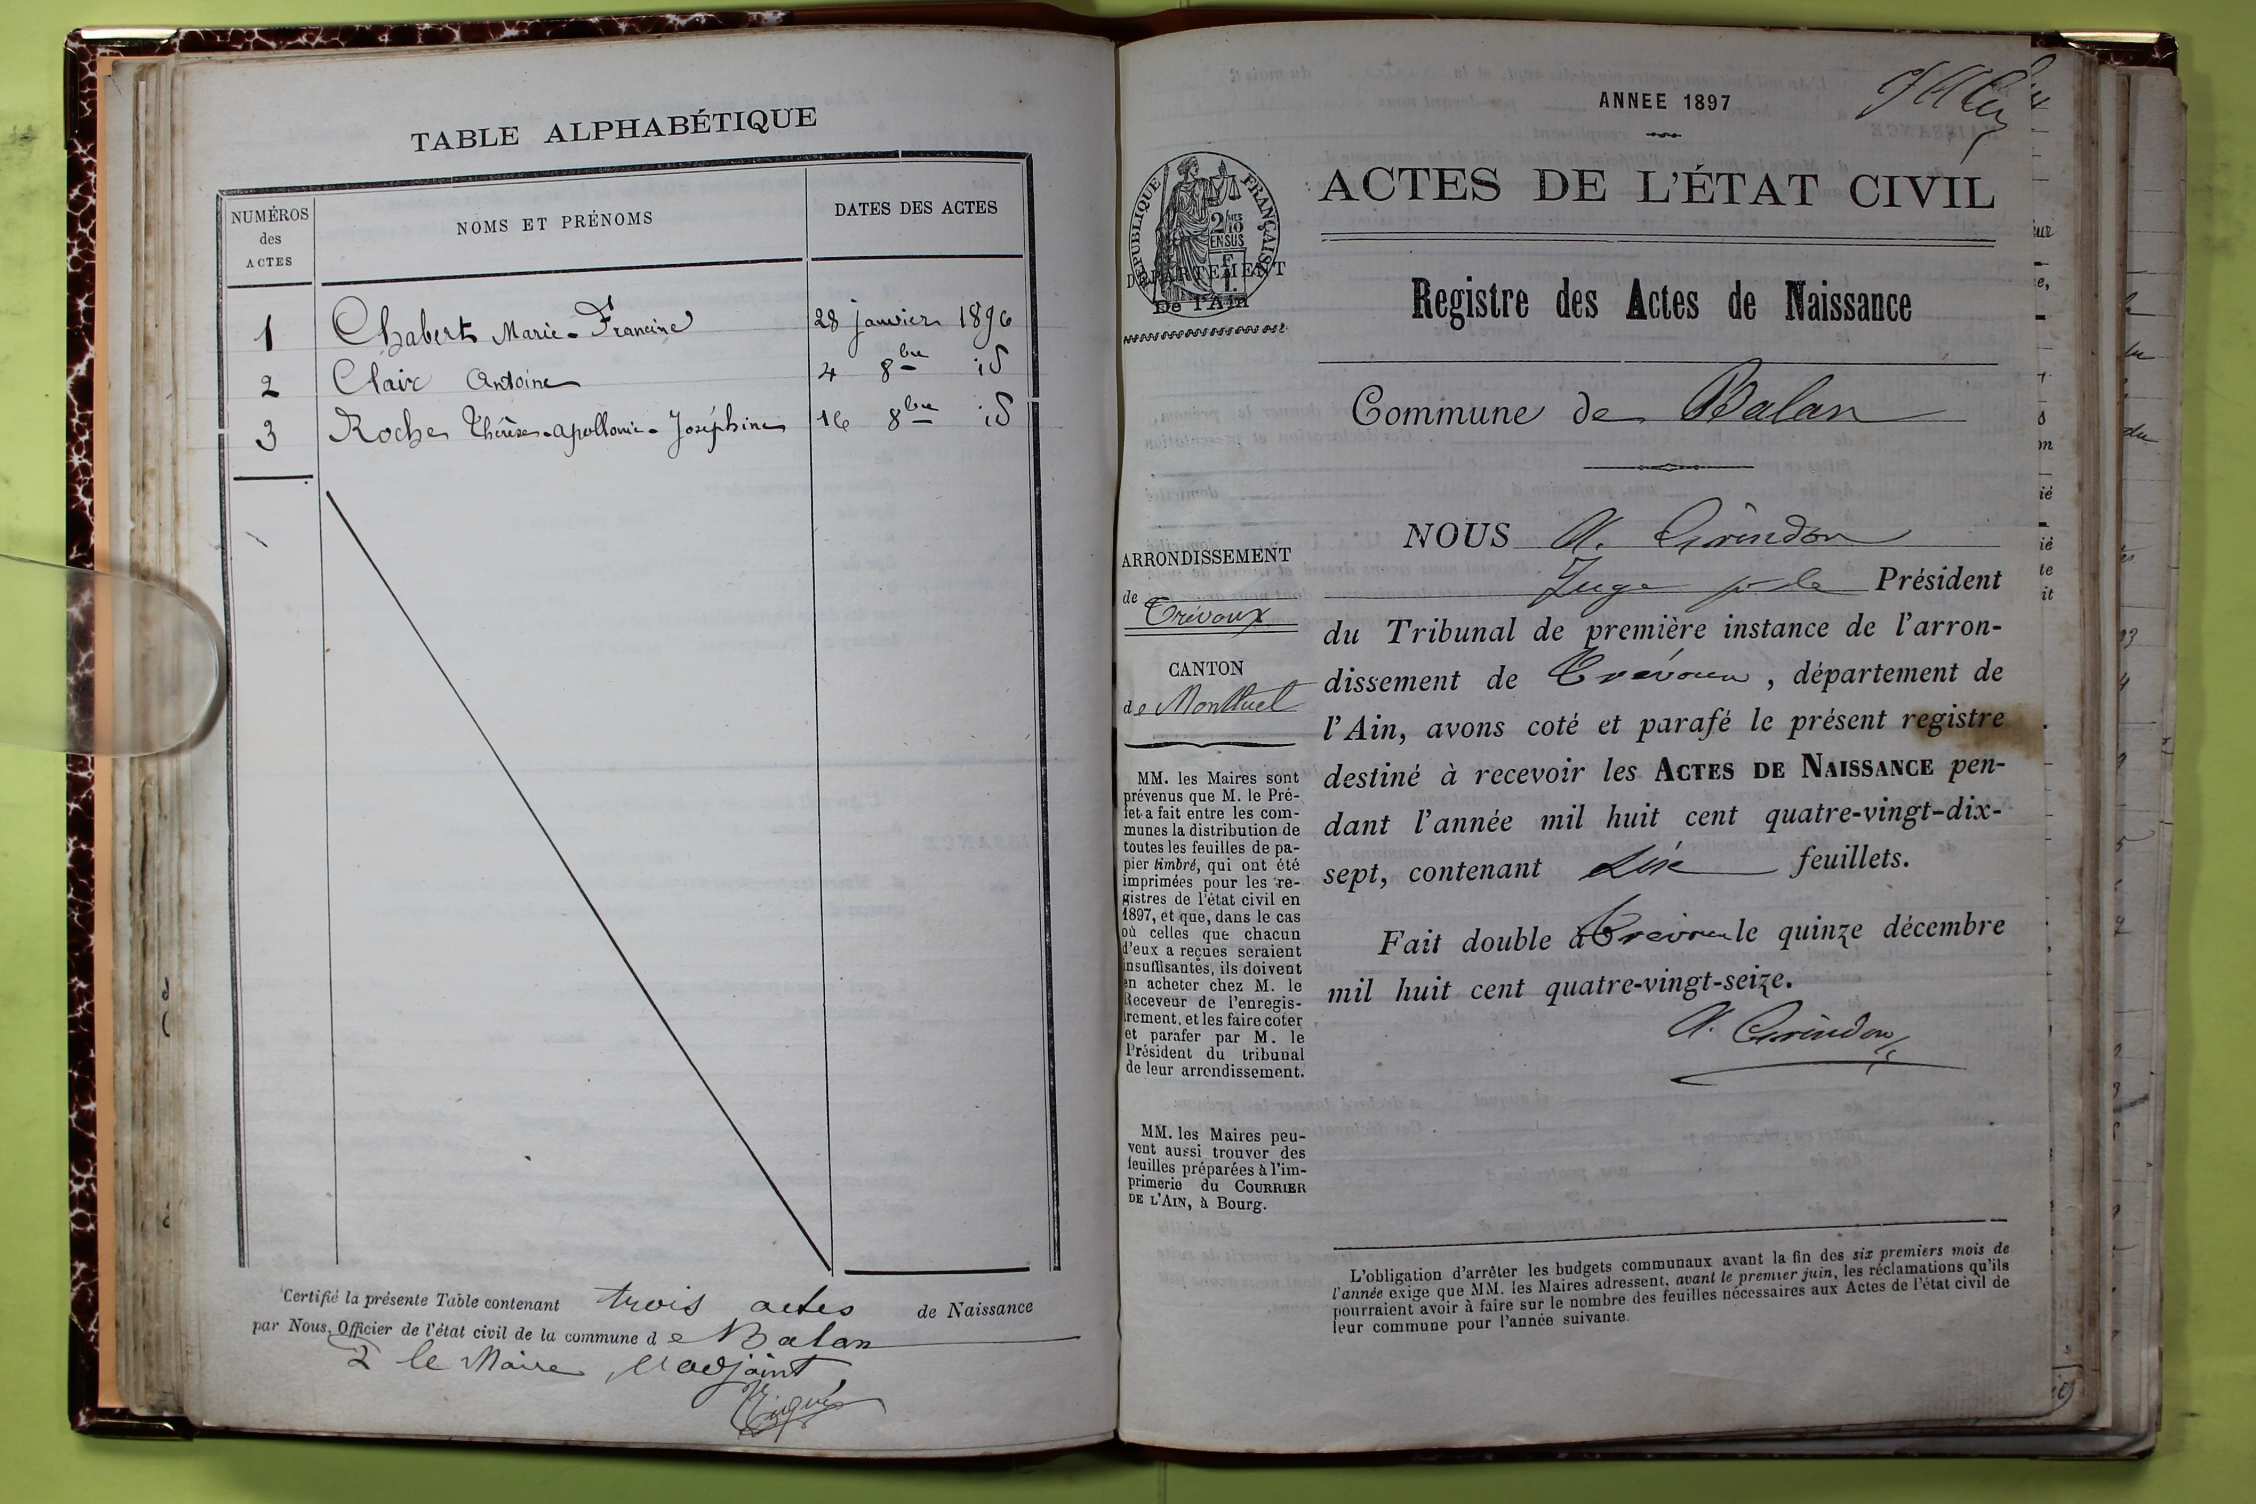 TABLE ALPHABÉTIQUE
NUMÉROS des ACTES
NOMS ET PRÉNOMS
DATES DES ACTES
1 Chabert Marie-Francine 28 janvier 1896
2 Clair Antoine 4 8bre id
3 Roche Thérèse-Apollonie-Joséphine 16 8bre id
Certifié la présente Table contenant trois actes de Naissance
par Nous, Officier de l'état civil de la commune de Balan
le Maire, l'adjoint
ANNEE 1897
RÉPUBLIQUE FRANÇAISE
DÉPARTEMENT
De l'Ain
ACTES DE L'ÉTAT CIVIL
Registre des Actes de Naissance
Commune de Balan
ARRONDISSEMENT
de Trévoux
CANTON
de Montluel
MM. les Maires sont
prévenus que M. le Pré-
fet a fait entre les com-
munes la distribution de
toutes les feuilles de pa-
pier timbré, qui ont été
imprimées pour les re-
gistres de l'état civil en
1897, et que, dans le cas
où celles que chacun
d'eux a reçues seraient
insuffisantes, ils doivent
en acheter chez M. le
Receveur de l'enregis-
trement, et les faire coter
et parafer par M. le
Président du tribunal
de leur arrondissement.
MM. les Maires peu-
vent aussi trouver des
feuilles préparées à l'im-
primerie du COURRIER
DE L'AIN, à Bourg.
NOUS A. Grindon
Juge pr le Président
du Tribunal de première instance de l'arron-
dissement de Trévoux, département de
l'Ain, avons coté et parafé le présent registre
destiné à recevoir les ACTES DE NAISSANCE pen-
dant l'année mil huit cent quatre-vingt-dix-
sept, contenant six feuillets.
Fait double à Trévoux le quinze décembre
mil huit cent quatre-vingt-seize.
A. Grindon
L'obligation d'arrêter les budgets communaux avant la fin des six premiers mois de
l'année exige que MM. les Maires adressent, avant le premier juin, les réclamations qu'ils
pourraient avoir à faire sur le nombre des feuilles nécessaires aux Actes de l'état civil de
leur commune pour l'année suivante.